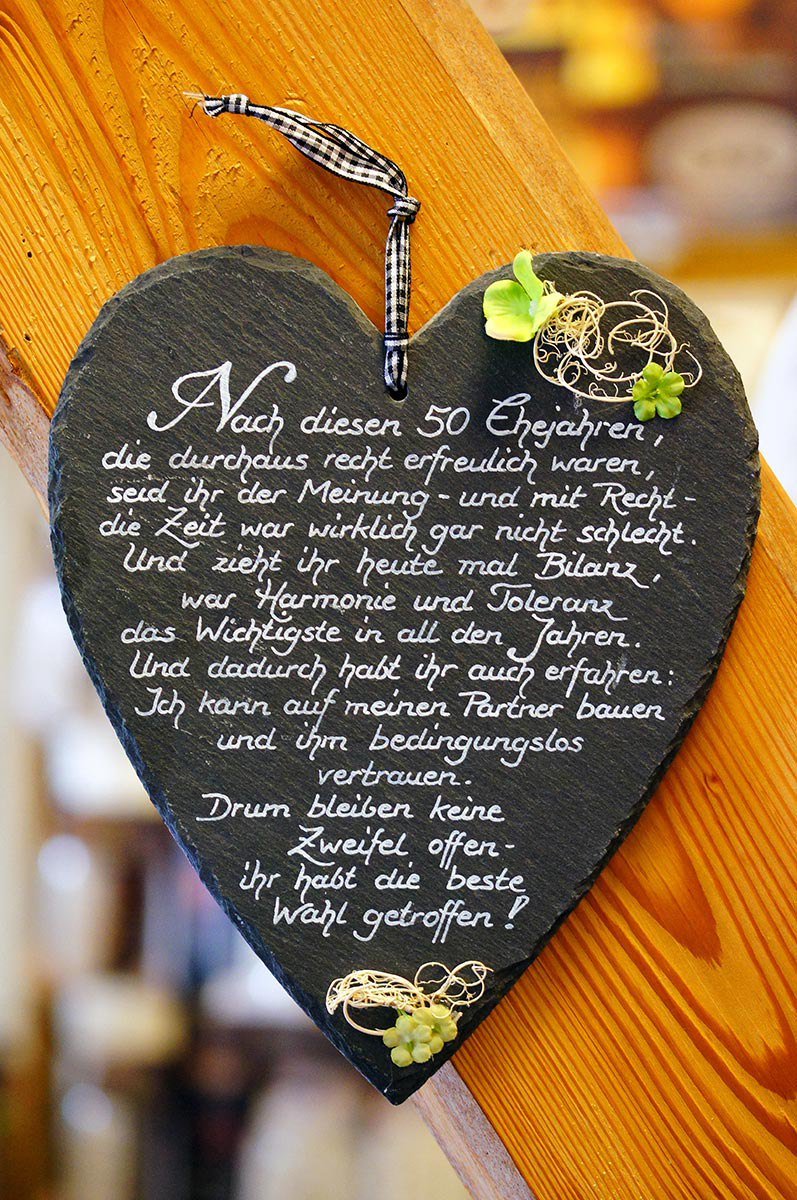 Nach diesen 50 Ehejahren,
die durchaus recht erfreulich waren,
seid ihr der Meinung - und mit Recht -
die Zeit war wirklich gar nicht schlecht.
Und zieht ihr heute mal Bilanz,
war Harmonie und Toleranz
das Wichtigste in all den Jahren.
Und dadurch habt ihr auch erfahren:
Ich kann auf meinen Partner bauen
und ihm bedingungslos
vertrauen.
Drum bleiben keine
Zweifel offen -
ihr habt die beste
Wahl getroffen!